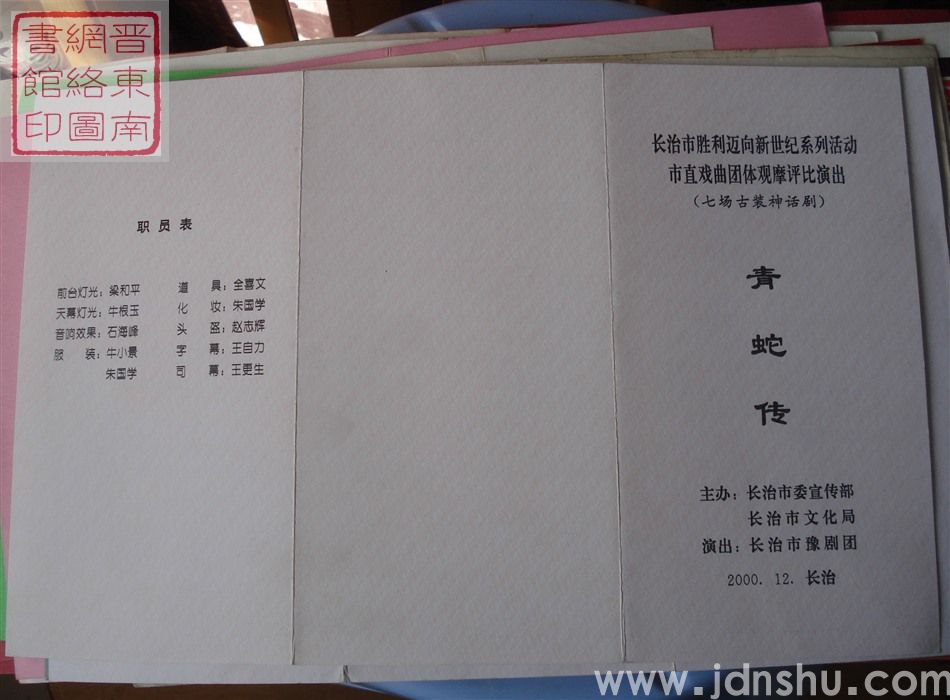 晋東南
網絡圖
書館印
职员表
前台灯光：梁和平 道具：全喜文
天幕灯光：牛根玉 化妆：朱国学
音响效果：石海峰 头盔：赵志辉
服装：牛小景 字幕：王自力
朱国学 司幕：王更生
长治市胜利迈向新世纪系列活动
市直戏曲团体观摩评比演出
（七场古装神话剧）
青
蛇
传
主办：长治市委宣传部
长治市文化局
演出：长治市豫剧团
2000.12.长治
www.jdnshu.com